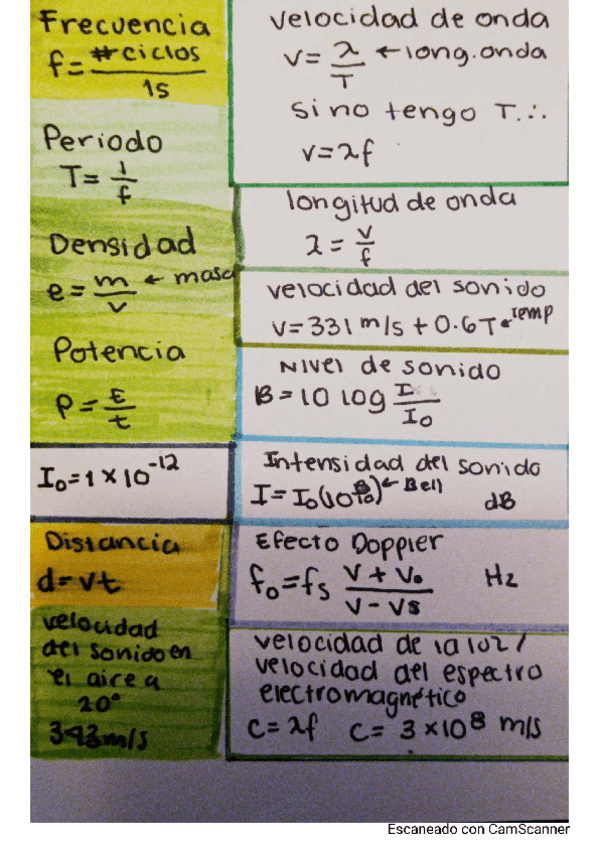 Frecuencia
f = #ciclos / 1s
Periodo
T = 1 / f
Densidad
e = m / v ← masa
Potencia
P = E / t
I₀ = 1 × 10⁻¹²
Distancia
d = vt
velocidad
del sonido en
el aire a
20°
343 m/s
velocidad de onda
v = λ / T ← long. onda
si no tengo T ∴
v = λf
longitud de onda
λ = v / f
velocidad del sonido
v = 331 m/s + 0.6T ← Temp
Nivel de sonido
B = 10 log I / I₀
Intensidad del sonido
I = I₀ (10^B/10) ← Bell dB
Efecto Doppler
f₀ = fs V + V₀ / V - Vs Hz
velocidad de la luz /
velocidad del espectro
electromagnético
C = λf C = 3 × 10⁸ m/s
Escaneado con CamScanner